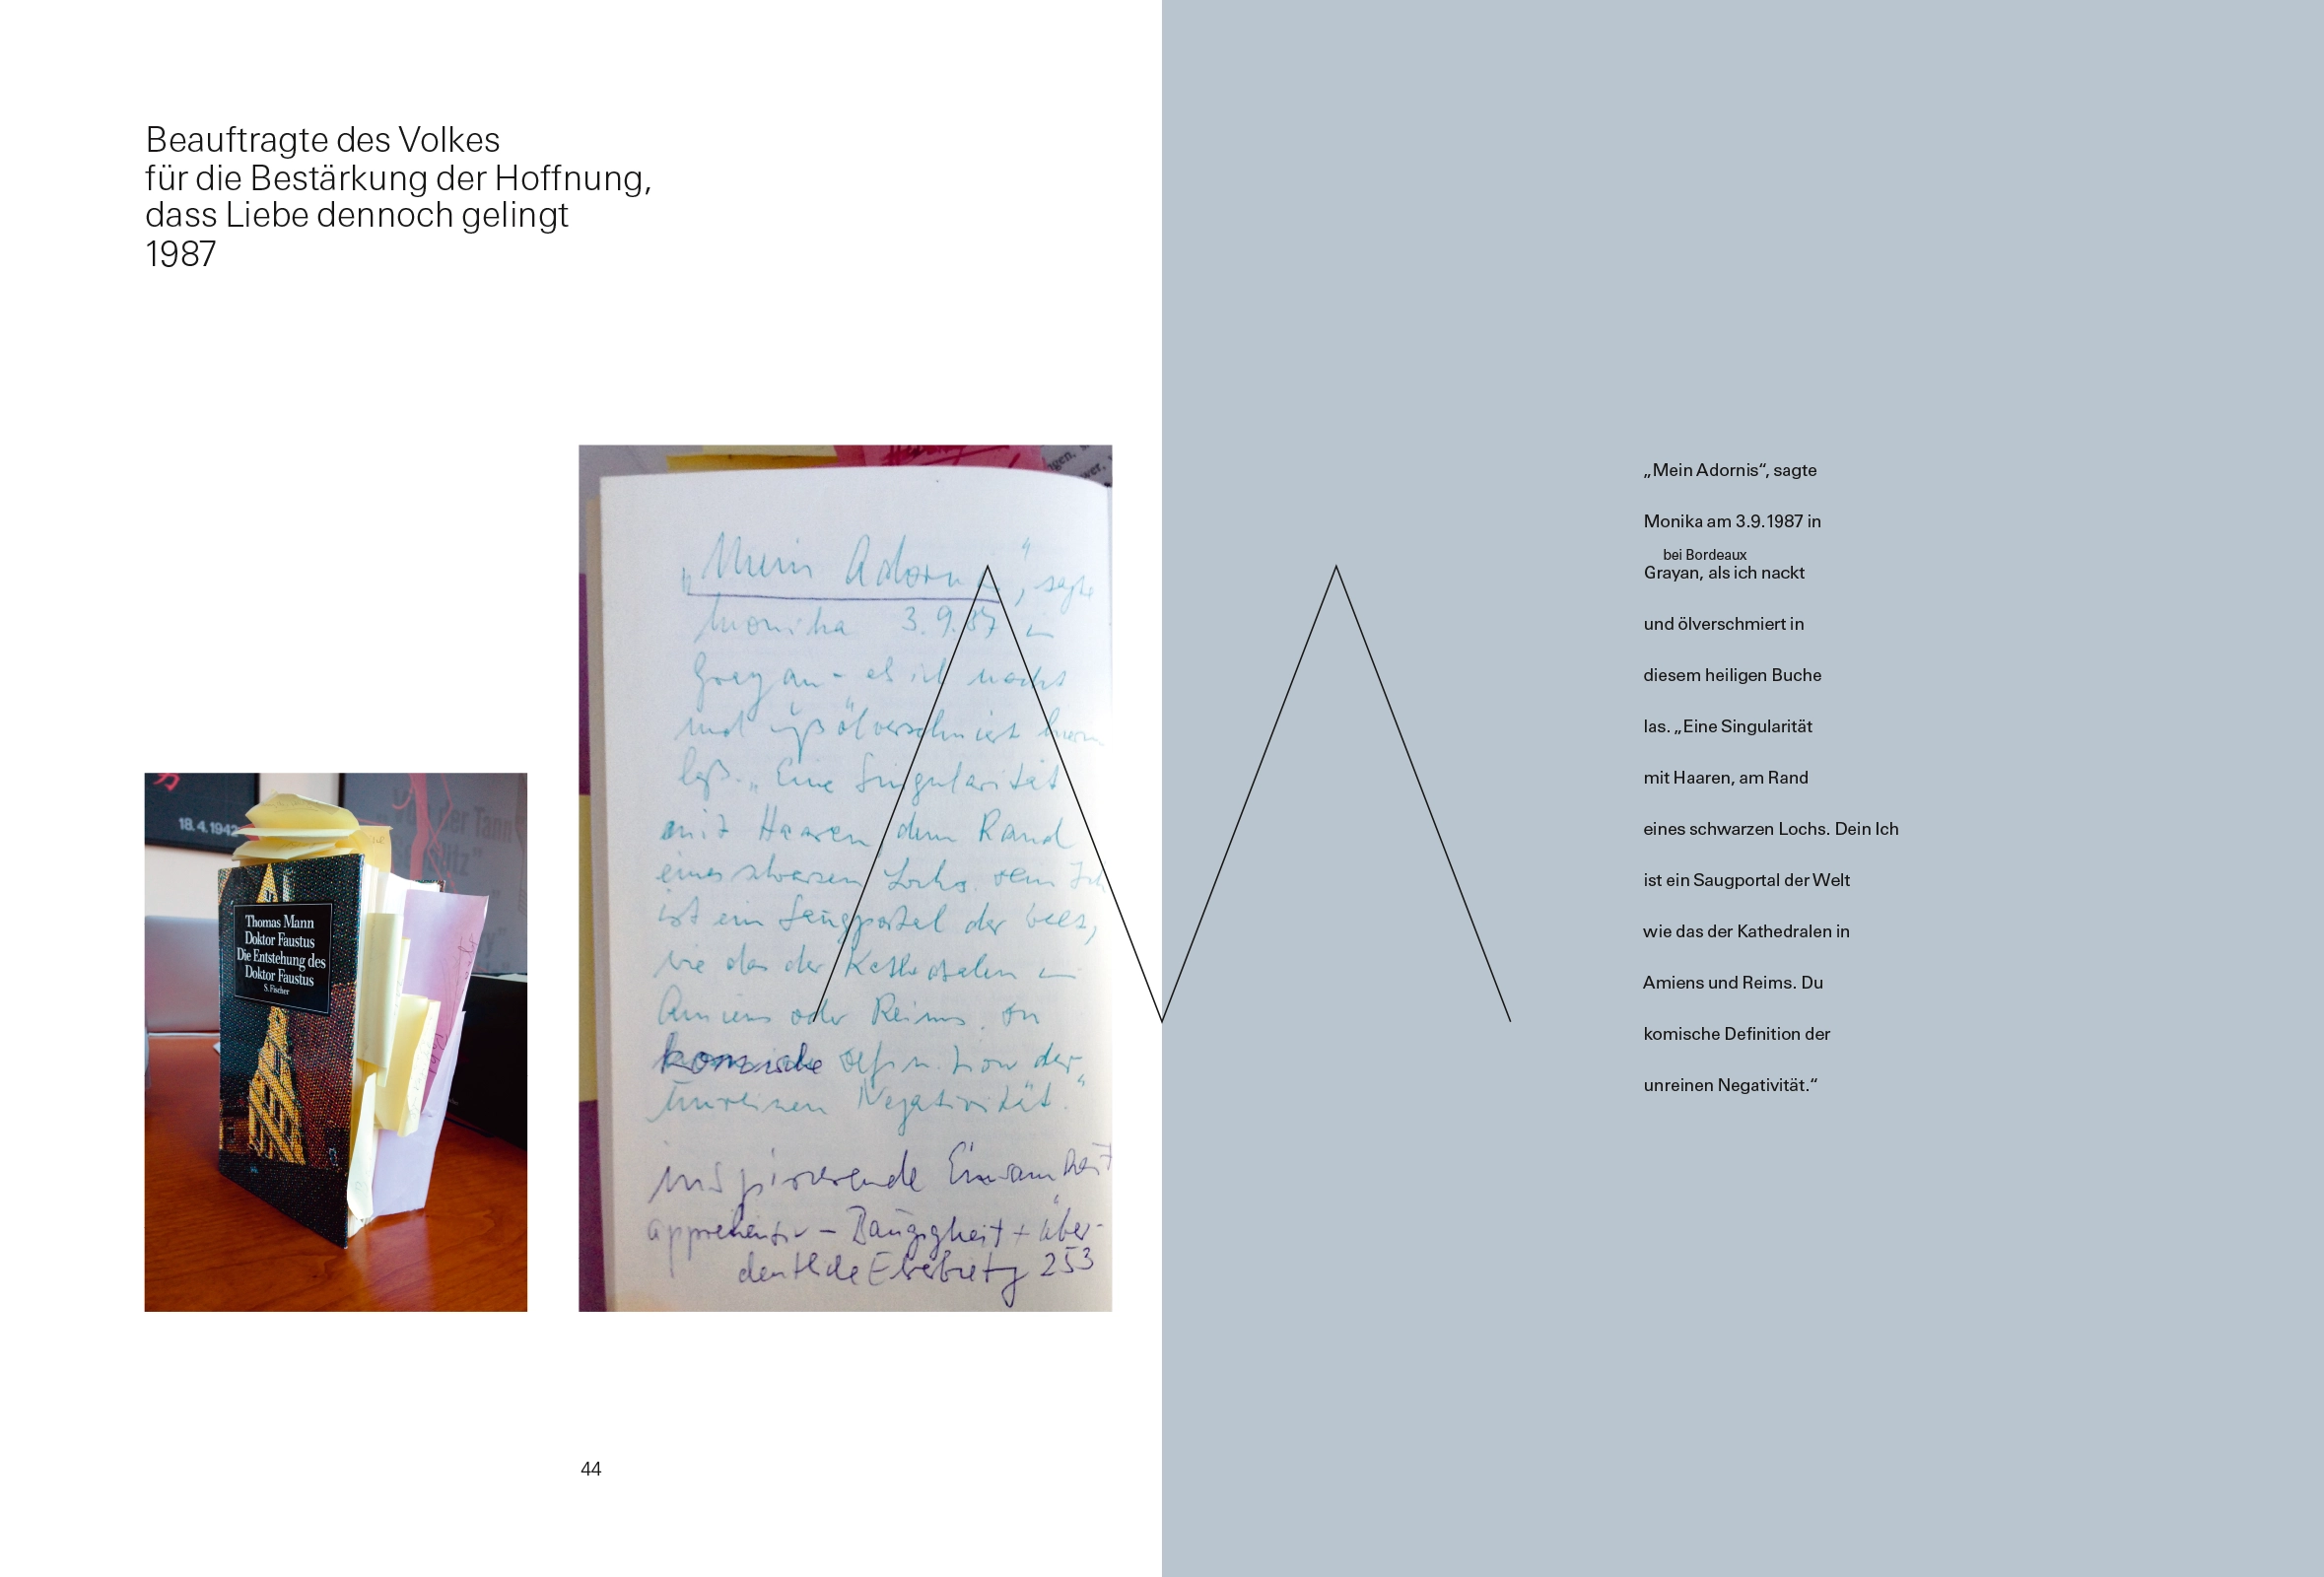 Beauftragte des Volkes
für die Bestärkung der Hoffnung,
dass Liebe dennoch gelingt
1987
18.4.1942
Thomas Mann
Doktor Faustus
Die Entstehung des
Doktor Faustus
S. Fischer
„Mein Adorn “, sagte
Monika 3.9.87 in
Grayan - als ich nackt
und ölverschmiert
laß. „Eine Singularität
mit Haaren, dem Rand
eines schwarzen Lochs. Dein Ich
ist ein Saugportal der Welt,
wie das der Kathedralen in
Amiens oder Reims. Du
komische Definition der
unreinen Negativität.“
inspirierende Einsamkeit
apprehensiv – Bangigkeit + über-
deutliche Ehrerbietg 253
„Mein Adornis“, sagte
Monika am 3.9.1987 in
bei Bordeaux
Grayan, als ich nackt
und ölverschmiert in
diesem heiligen Buche
las. „Eine Singularität
mit Haaren, am Rand
eines schwarzen Lochs. Dein Ich
ist ein Saugportal der Welt
wie das der Kathedralen in
Amiens und Reims. Du
komische Definition der
unreinen Negativität.“
44